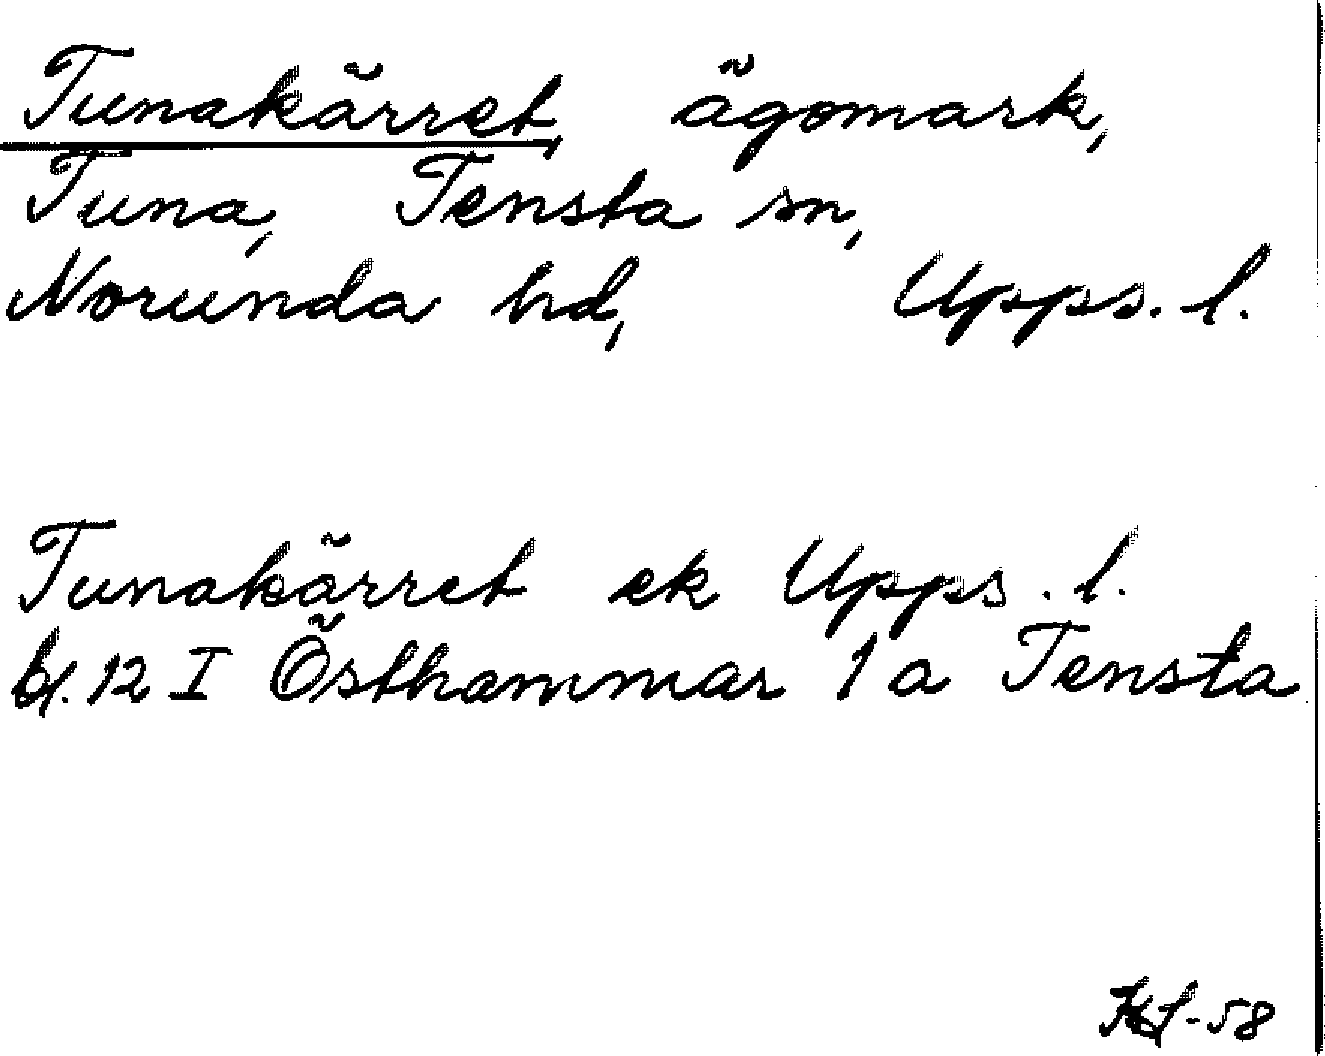 Tunakärret, ägomark,
Tuna, Tensta sn,
Norunda hd, Upps. l.
Tunakärret ek Upps. l.
bl. 12 I Östhammar 1 a Tensta
-58